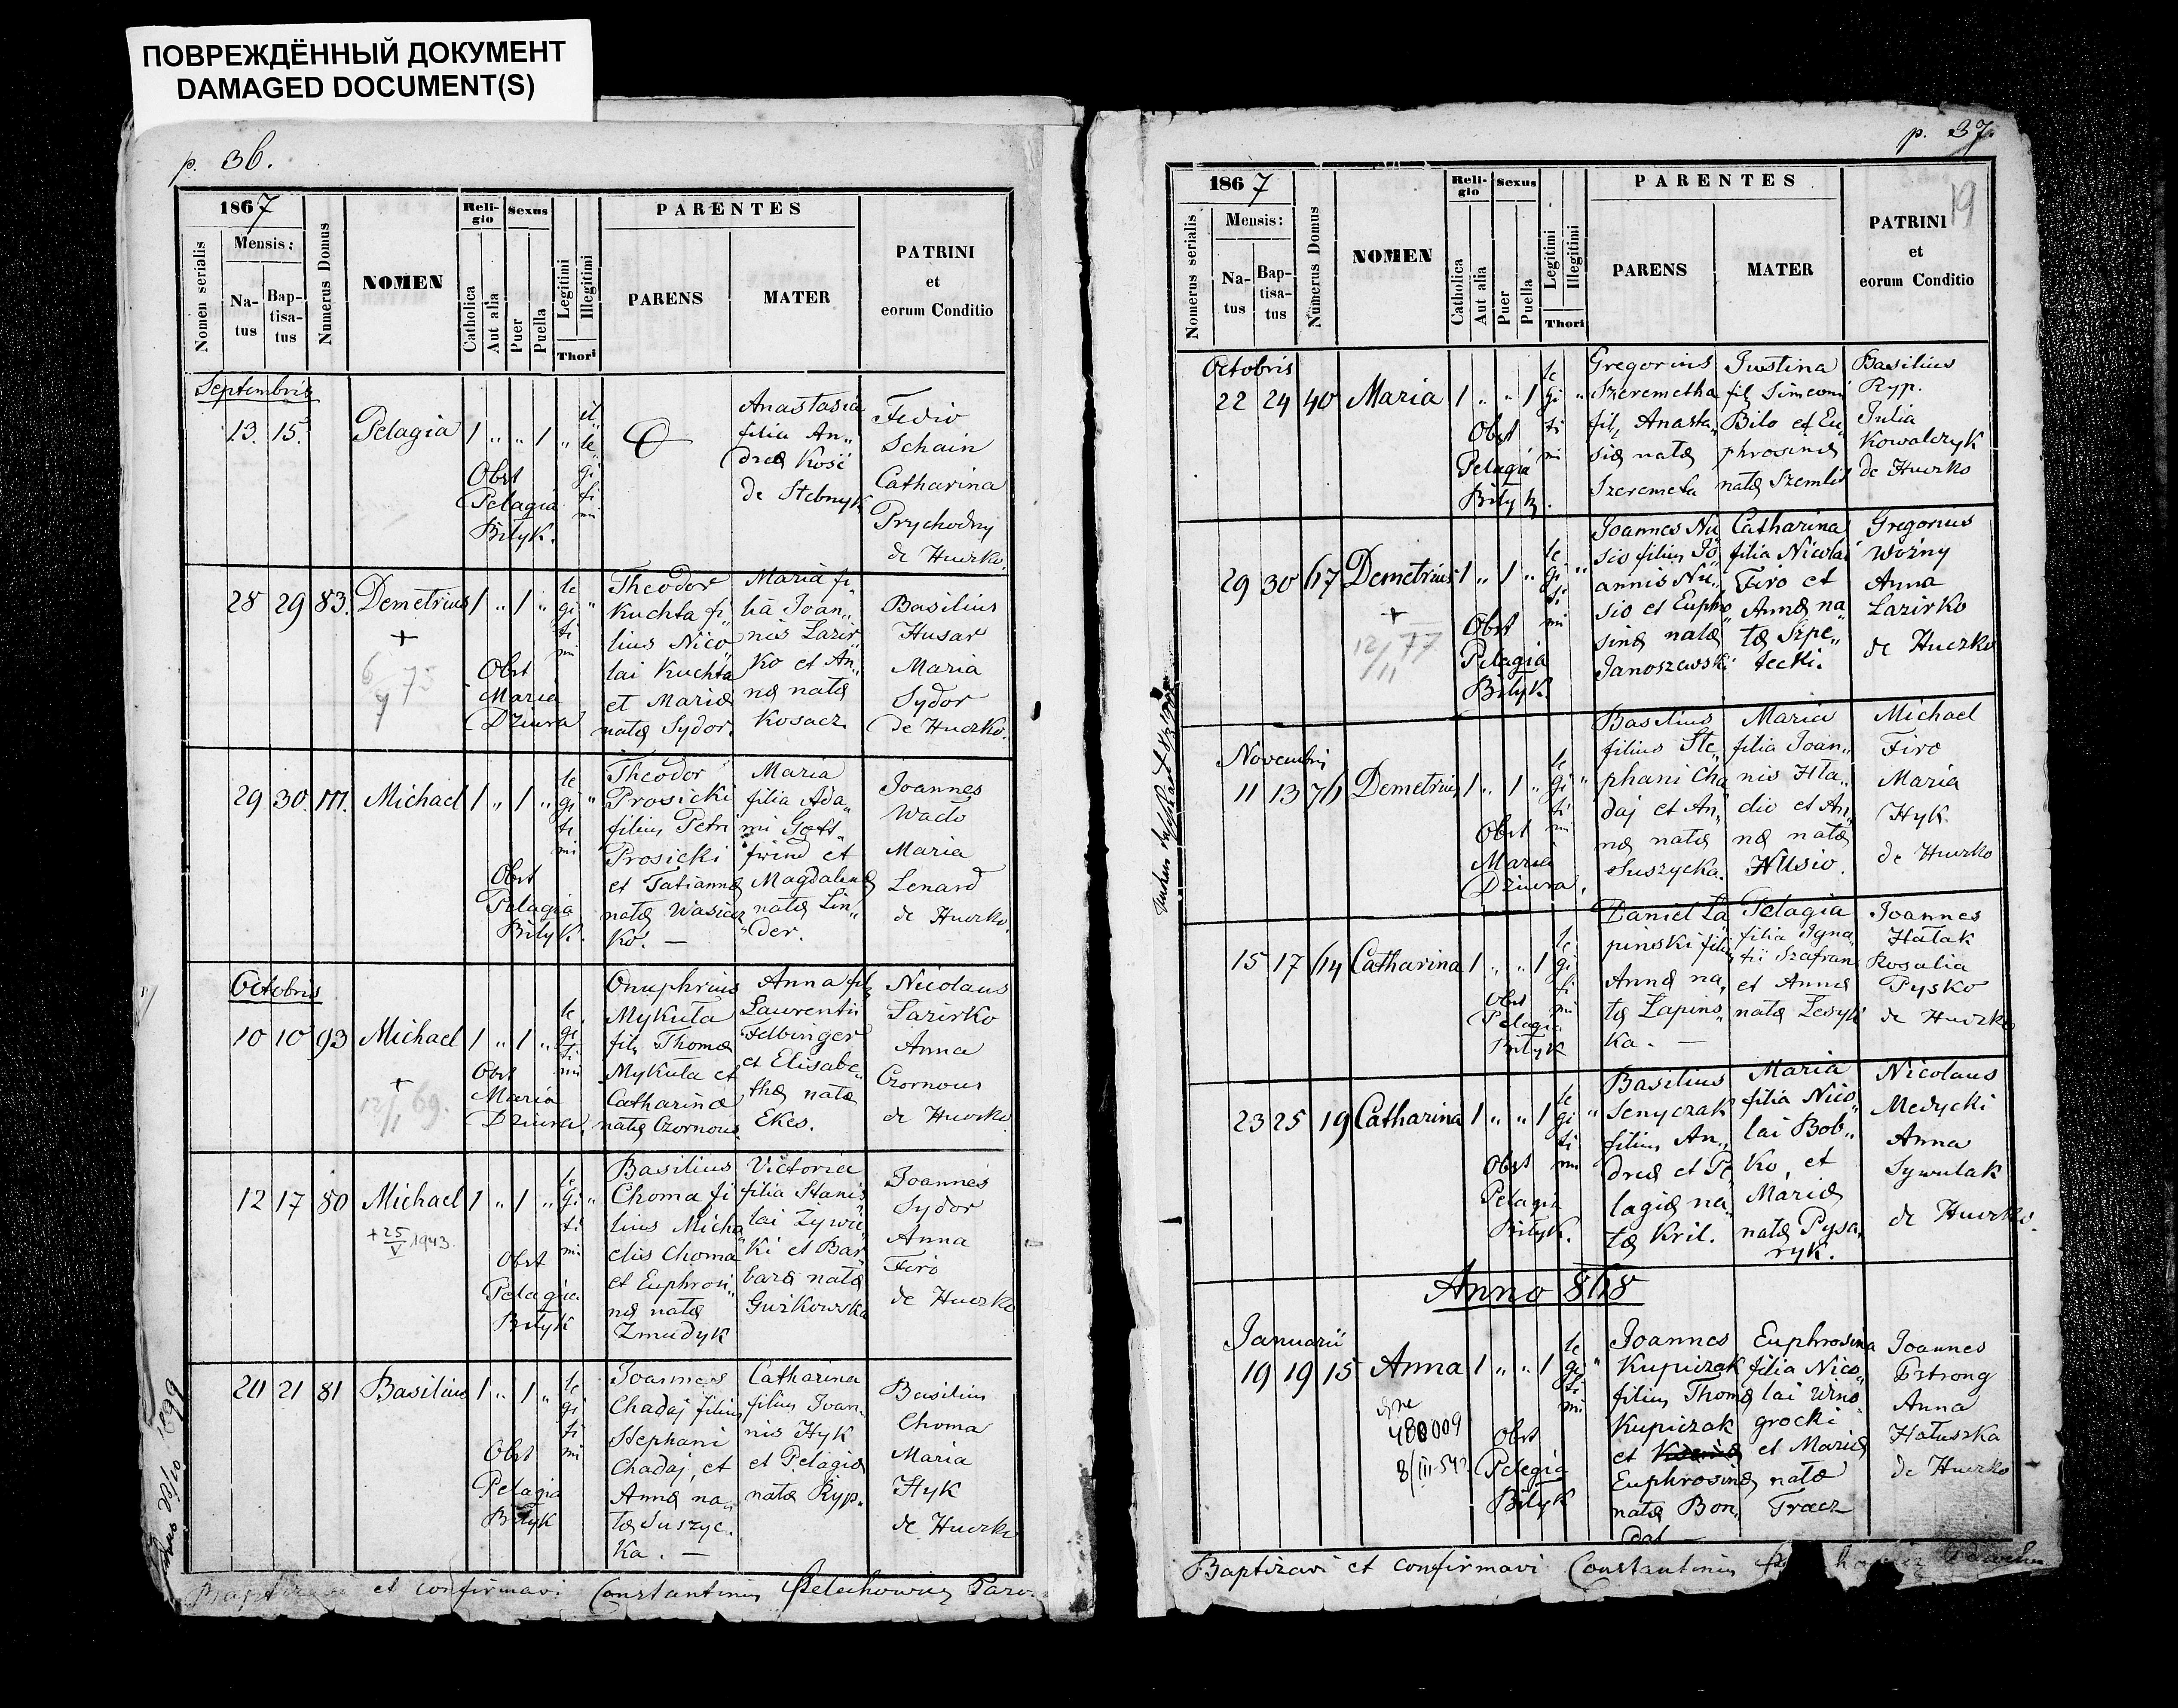 ПОВРЕЖДЁННЫЙ ДОКУМЕНТ
DAMAGED DOCUMENT(S)
p. 36.
1867
Nomen serialis
Mensis:
Na-
tus
Bap-
tisa-
tus
Numerus Domus
NOMEN
Reli-
gio
Catholica
Aut alia
Sexus
Puer
Puella
Legitimi
Illegitimi
Thori
PARENTES
PARENS
MATER
PATRINI
et
eorum Conditio
Septembris
13. 15. Pelagia 1 " " 1 "
il
le
gi
ti
mi
Obst
Pelagia
Bilyk.
Anastasia
filia An„
dreæ Kość
de Stebnyk
Fedio
Schain
Catharina
Prychodny
de Huczko.
28 29 83. Demetrius 1 " 1 "
+
6/7 75
le
gi "
ti
mi
Obst
Maria
Dziura
Theodor
Kuchta fi
lius Nico„
lai Kuchta
et Mariæ
natæ Sydor.
Maria fi„
lia Joan„
nis Łazir
ko et An„
næ natæ
Kosacz
Basilius
Husar
Maria
Sydor
de Huczko.
29 30. 111. Michael 1 " 1 "
le
gi "
ti
mi
Obst
Pelagia
Bilyk.
Theodor
Prosicki
filius Petri
Prosicki
et Tatiannæ
natæ Wasicz
ko. —
Maria
filia Ada„
mi Gott„
friend et
Magdalenæ
natæ Lin„
der.
Joannes
Wacło
Maria
Lenard
de Huczko.
Octobris
10 10 93 Michael 1 " 1 "
+
12/1 69.
le
gi
ti
mi
Obst
Maria
Dziura.
Onuphrius
Mykuła
fil. Thomæ
Mykuła et
Catharinæ
natæ Czornous.
Anna fil.
Laurentii
Felbinger
et Elisabe„
thæ natæ
Ekes.
Nicolaus
Łazirko
Anna
Czornous
de Huczko
12 17 80 Michael 1 " 1 "
+ 25/V 1943.
le
gi "
ti
mi
Obst
Pelagia
Bilyk
Basilius
Choma fi
lius Micha
elis Choma
et Euphrosi„
næ natæ
Zmudyk
Victoria
filia Stanis
lai Żywic
ki et Bar„
baræ natæ
Guzkowska
Joannes
Sydor
Anna
Firo
de Huczko
20 21 81 Basilius 1 " 1 "
le
gi
ti
mi
Obst
Pelagia
Bilyk
Joannes
Chadaj filius
Stephani
Chadaj, et
Annæ na„
tæ Suszyc„
ka. —
Catharina
filius Joan„
nis Hyk
et Pelagiæ
natæ Ryp.
Basilius
Choma
Maria
Hyk
de Huczko
1899
et confirmavi Constantinus Pelechowicz Paro.
p. 37.
19
1867
Nomerus serialis
Mensis:
Na-
tus
Bap-
tisa-
tus
Numerus Domus
NOMEN
Reli-
gio
Catholica
Aut alia
Sexus
Puer
Puella
Legitimi
Illegitimi
Thori
PARENTES
PARENS
MATER
PATRINI
et
eorum Conditio
Octobris
22 24 40 Maria 1 " " 1
le
gi "
ti
mi
Obst
Pelagia
Bilyk.
Gregorius
Szeremetha
fil. Anasta„
siæ natæ
Szeremeta
Justina
fil. Simeoni
Bilo et Eu„
phrosinæ
natæ Szemlit
Basilius
Ryp.
Julia
Kowalczyk
de Huczko
29 30 67 Demetrius 1 " 1 "
+
12/11 77
le
gi "
ti
mi
Obst
Pelagia
Bilyk.
Joannes Nu
sio filius Jo„
annis Nu„
sio et Euphro
sinæ natæ
Janoszewski
Catharina
filia Nicolai
Firo et
Annæ na
tæ Szpe„
tecki.
Gregorius
Woźny
Anna
Łazirko
de Huczko
Novembris
11 13 76 Demetrius 1 " 1 "
le
gi "
ti
mi
Obst
Maria
Dziura.
Basilius
filius Ste„
phani Cha
daj et An„
næ natæ
Suszycka.
Maria
filia Joan„
nis Hła„
dio et An„
næ natæ
Nusio.
Michael
Firo
Maria
Hyk
de Huczko
15 17 64 Catharina 1 " " 1
le
gi
ti
mi
Obst
Pelagia
Bilyk
Daniel Ła
pinski filius
Annæ na„
tæ Łapins„
ka. —
Pelagia
filia Igna„
tii Szafran
et Annæ
natæ Lessyk
Joannes
Hałak
Rosalia
Pysko
de Huczko
23 25 19 Catharina 1 " " 1
le
gi "
ti
mi
Obst
Pelagia
Bilyk.
Basilius
Senyczak
filius An„
dreæ et Pe„
lagiæ na„
tæ Kril.
Maria
filia Nico„
lai Bob„
ko, et
Mariæ
natæ Pysa„
ryk.
Nicolaus
Medycki
Anna
Sywulak
de Huczko.
Anno 868
Januarii
19 19 15 Anna 1 " " 1
480009
8/III-542
le
gi "
ti
mi
Obst
Pelegia
Bilyk
Joannes
Kupiczak
filius Thomæ
Kupiczak
et
Euphrosinæ
natæ Bon„
dal —
Euphrosina
filia Nico„
lai Wino
grocki
et Mariæ
natæ
Tracz
Joannes
Estrong
Anna
Hałuszka
de Huczko
Baptizavi et confirmavi Constantinus